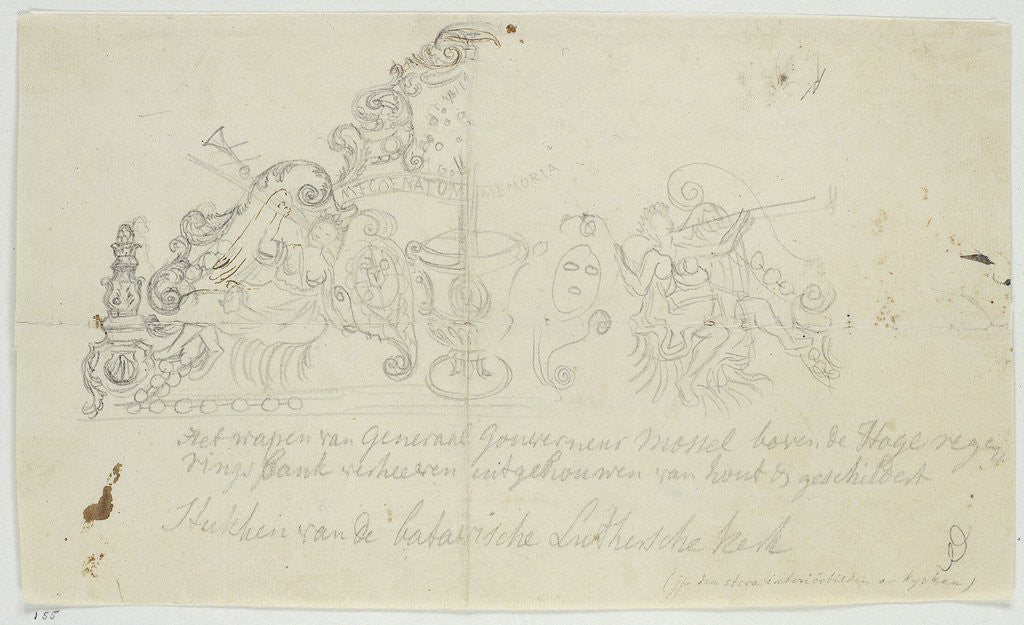 MECOENATUM MEMORIA
Het wapen van Generaal Gouverneur Mossel boven de Hoge rege
rings bank verheeven uitgehouwen van hout & geschildert
Stukken van de bataviische Luthersche kerk
(jfr den stora interiörbilden av kyrkan)
155